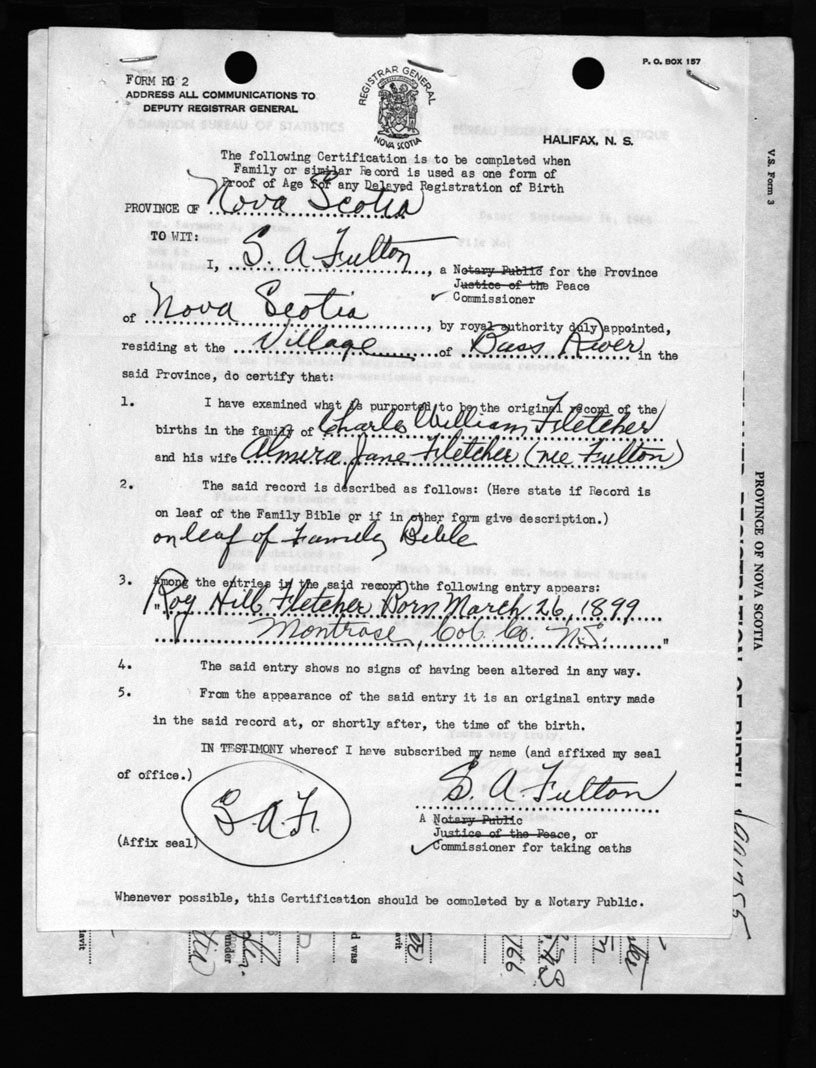 P. O. BOX 157
FORM RG 2
ADDRESS ALL COMMUNICATIONS TO
DEPUTY REGISTRAR GENERAL
REGISTRAR GENERAL
NOVA SCOTIA
HALIFAX, N. S.
The following Certification is to be completed when
Family or similar Record is used as one form of
Proof of Age for any Delayed Registration of Birth
PROVINCE OF Nova Scotia
TO WIT:
I, S. A Fulton, a Notary Public for the Province
Justice of the Peace
✓ Commissioner
of Nova Scotia, by royal authority duly appointed,
residing at the Village of Bass River in the
said Province, do certify that:
1. I have examined what is purported to be the original record of the
births in the family of Charles William Fletcher
and his wife Almira Jane Fletcher (nee Fulton)
2. The said record is described as follows: (Here state if Record is
on leaf of the Family Bible or if in other form give description.)
on leaf of Family Bible
3. Among the entries in the said record the following entry appears:
"Roy Hill Fletcher Born March 26, 1899
Montrose, Col. Co. N.S. "
4. The said entry shows no signs of having been altered in any way.
5. From the appearance of the said entry it is an original entry made
in the said record at, or shortly after, the time of the birth.
IN TESTIMONY whereof I have subscribed my name (and affixed my seal
of office.)
S. A. Fulton
S.A.F.
A Notary Public
Justice of the Peace, or
(Affix seal) ✓ Commissioner for taking oaths
Whenever possible, this Certification should be completed by a Notary Public.
V.S. Form 3
PROVINCE OF NOVA SCOTIA
OF BIRTH